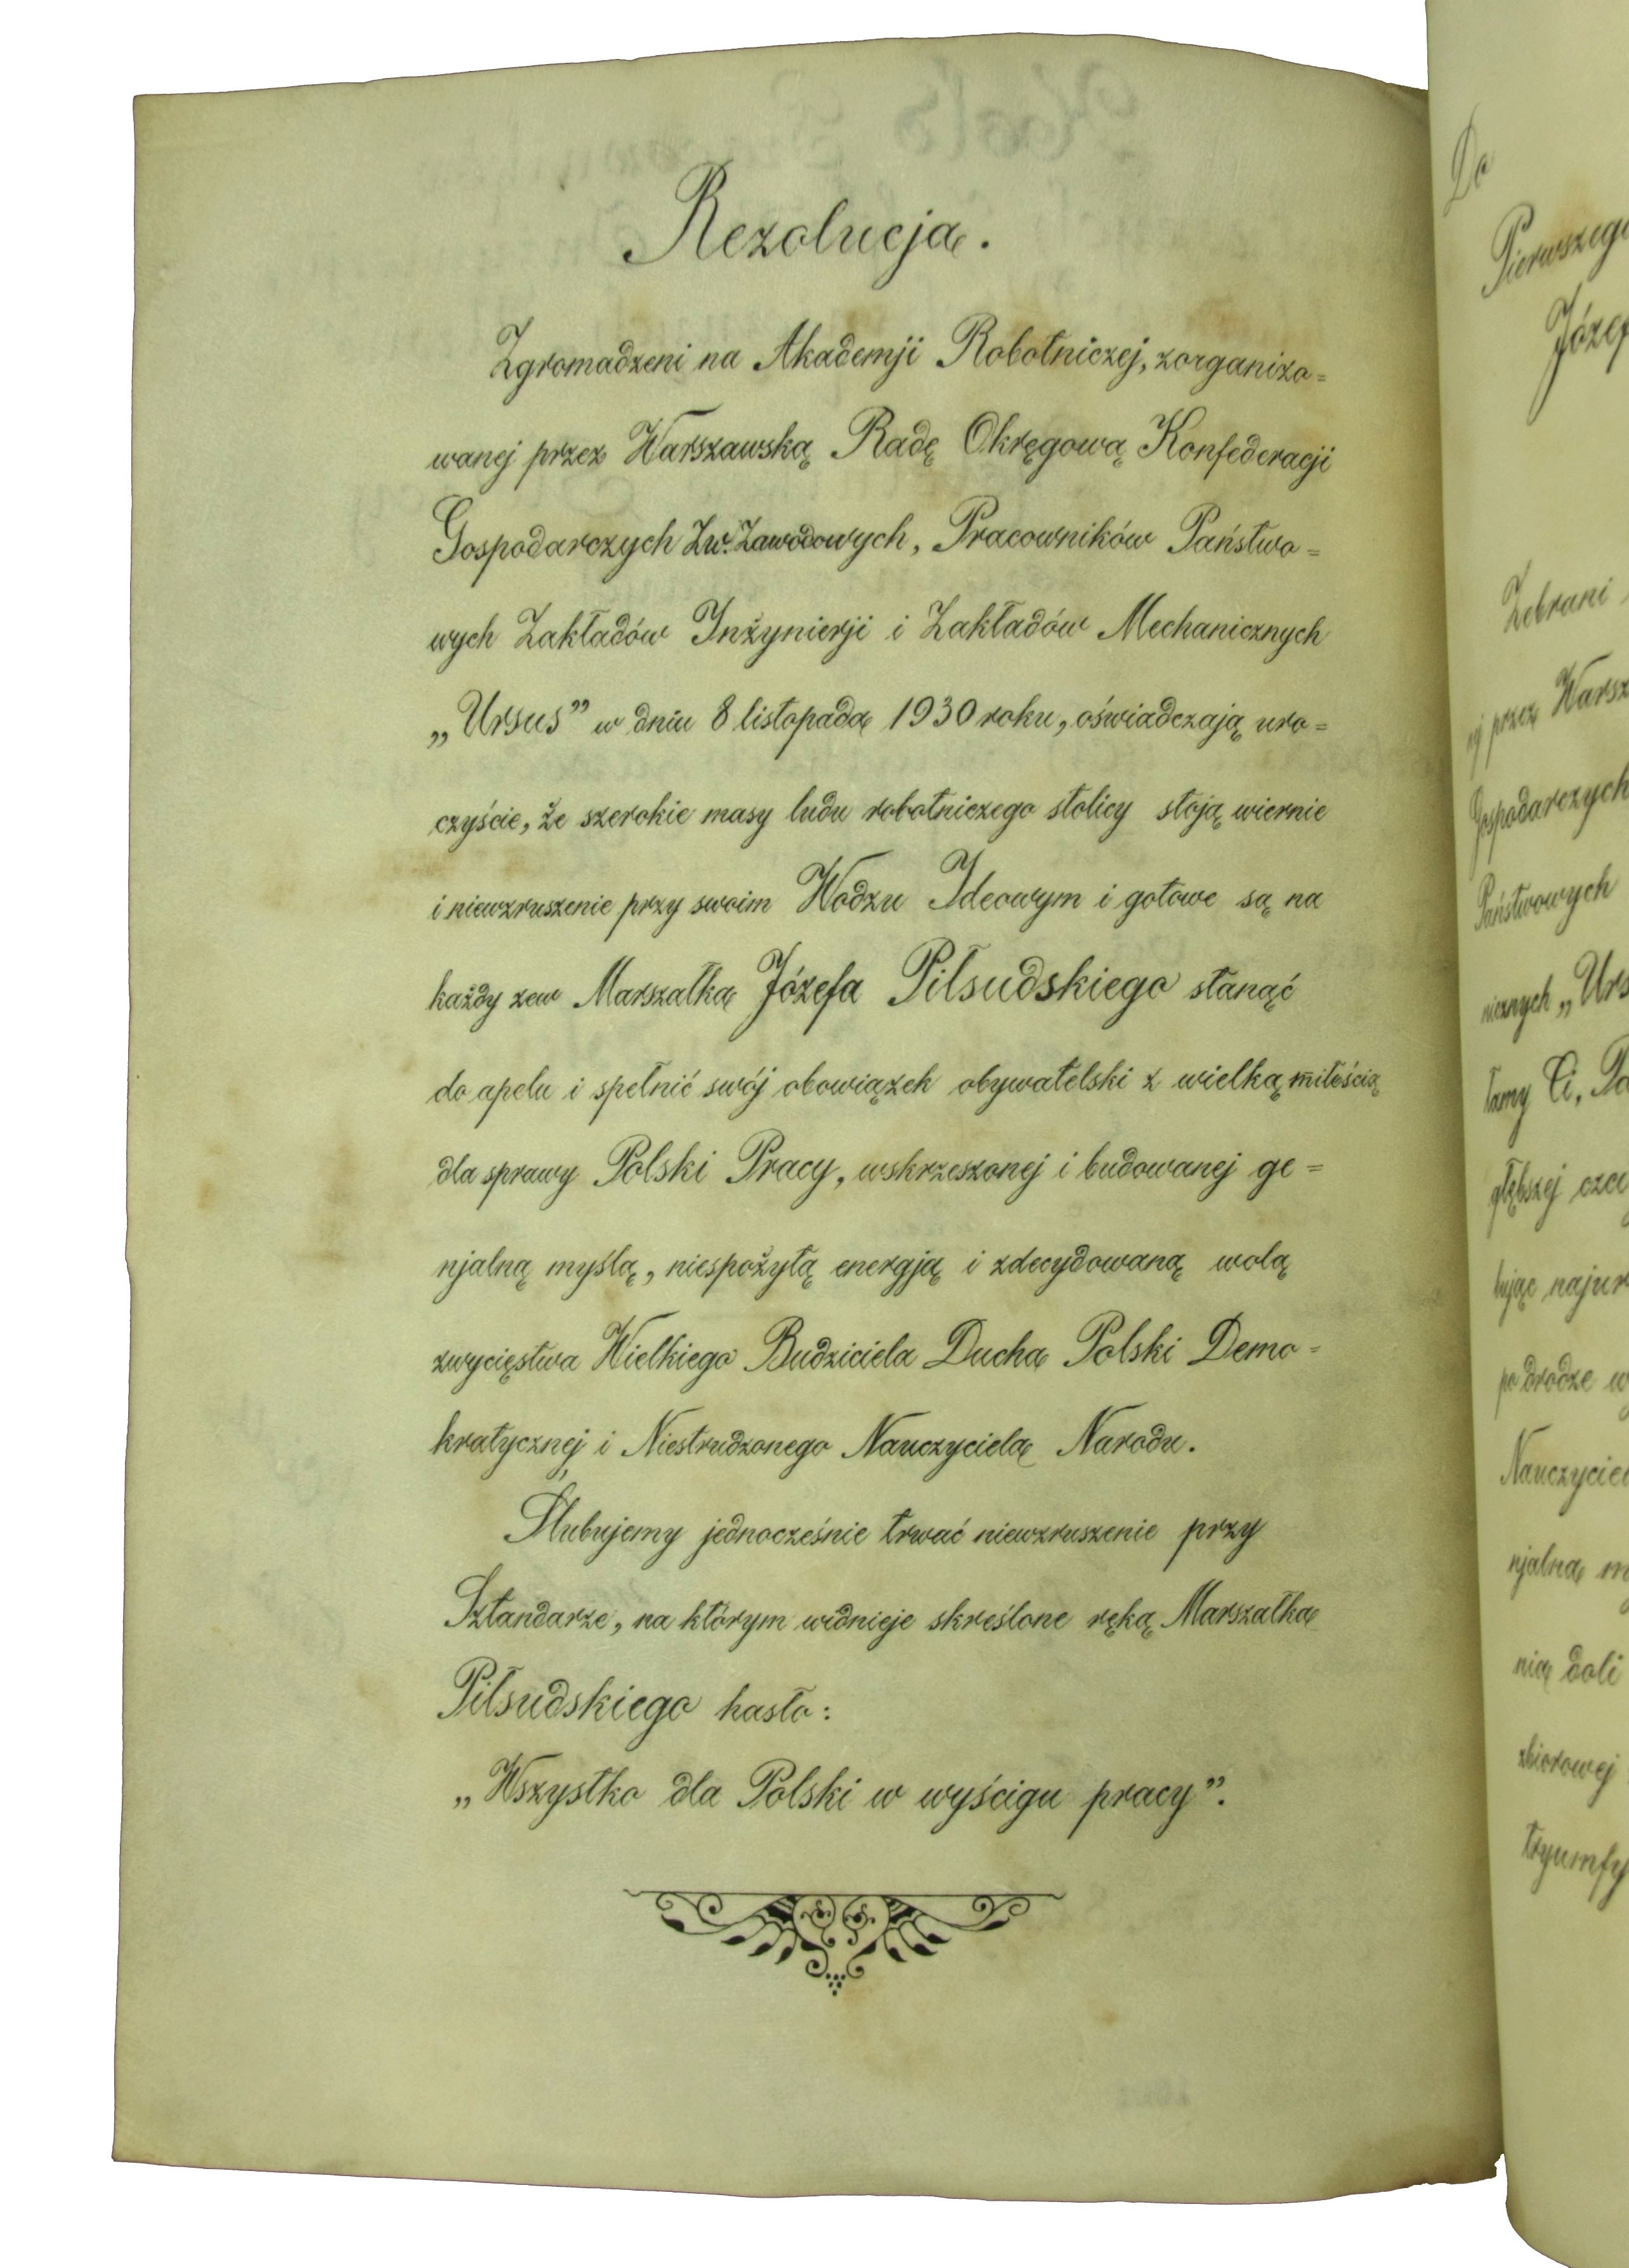 Rezolucja.
Zgromadzeni na Akademji Robotniczej, zorganizo=
wanej przez Warszawską Radę Okręgową Konfederacji
Gospodarczych Zw. Zawodowych, Pracowników Państwo=
wych Zakładów Inżynierji i Zakładów Mechanicznych
„Ursus” w dniu 8 listopada 1930 roku, oświadczają uro=
czyście, że szerokie masy ludu robotniczego stolicy stoją wiernie
i niewzruszenie przy swoim Wodzu Ideowym i gotowe są na
każdy zew Marszałka Józefa Piłsudskiego stanąć
do apelu i spełnić swój obowiązek obywatelski z wielką miłością
dla sprawy Polski Pracy, wskrzeszonej i budowanej ge=
njalną myślą, niespożytą energją i zdecydowaną wolą
zwycięstwa Wielkiego Budziciela Ducha Polski Demo=
kratycznej i Niestrudzonego Nauczyciela Narodu.
Ślubujemy jednocześnie trwać niewzruszenie przy
Sztandarze, na którym widnieje skreślone ręką Marszałka
Piłsudskiego hasło:
„Wszystko dla Polski w wyścigu pracy”.
Do
Zebrani
przez
Gospodarczych
Państwowych
Ci,
głębszej
po drodze
njalną
doli
zbiorowej